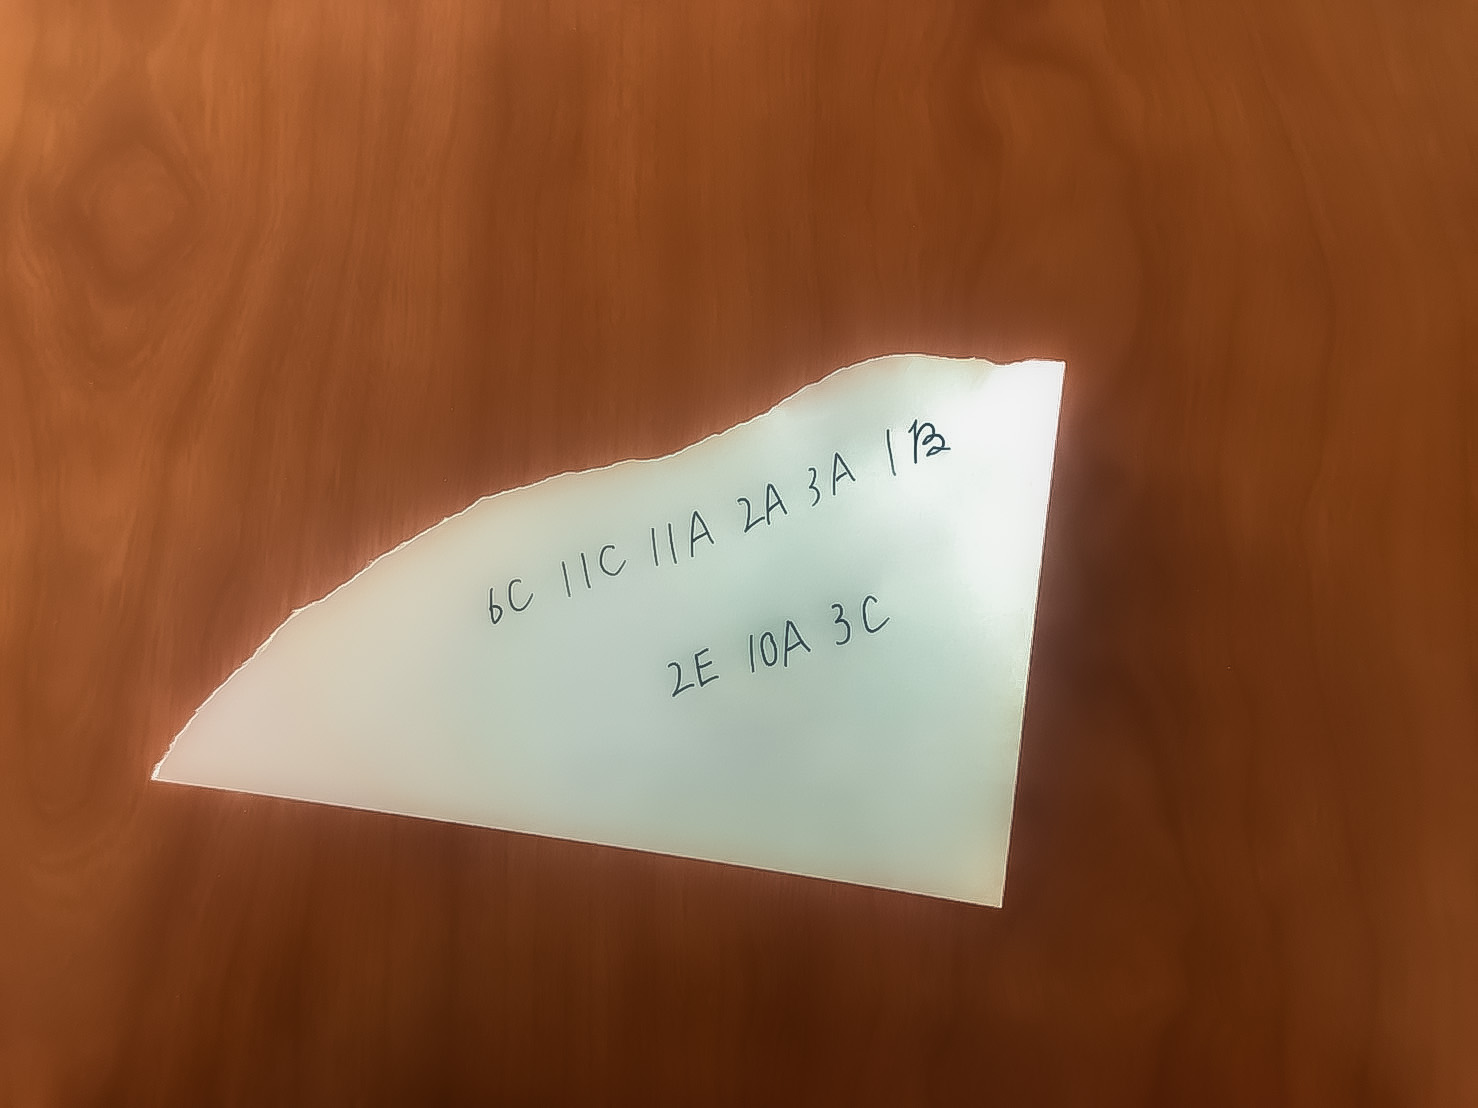 6C 11C 11A 2A 3A 1B
2E 10A 3C